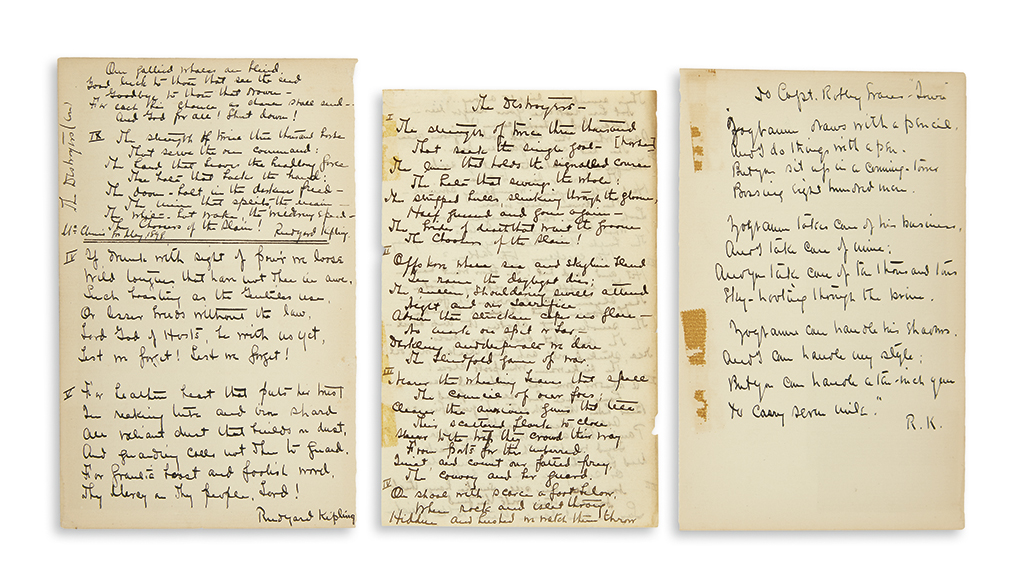 Our gallied whales are blind,
Good luck to those that see the end
Goodbye to those that drown –
For each his chance as chance shall send –
And God for all! Shut down!
IX The strength of twice three thousand horse
That serve the one command:
The hand that heaves the headlong force
The hate that backs the hand:
The doom-bolt in the darkness freed –
The mine that splits the main –
The white-hot wake, the 'wildering speed –
The Choosers of the Slain! Rudyard Kipling.
The Destroyers (cont)
McClure's Mag 1898
IV If, drunk with sight of power, we loose
Wild tongues that have not Thee in awe,
Such boasting as the Gentiles use,
Or lesser breeds without the law,
Lord God of Hosts, be with us yet,
Lest we forget! Lest we forget!
V For heathen heart that puts her trust
In reeking tube and iron shard
All valiant dust that builds on dust,
And guarding calls not Thee to guard.
For frantic boast and foolish word,
Thy Mercy on Thy people, Lord!
Rudyard Kipling
The Destroyers –
I The strength of twice three thousand
That seek the single goal – [horse]
The line that holds the rending course
The hate that swings the whole:
The stripped hulls, slinking through the gloom,
At gaze and gone again –
The Brides of death that wait the groom
The Choosers of the Slain!
II Offshore where sea and skyline blend
In rain, the daylight dies;
The sullen, shouldering swells attend
Night and our sacrifice
Adown the stricken capes no flare –
No mark on spit or bar –
Darkling and desperate we dare
The blindfold game of war.
III Nearer the wheeling beams that spell
The council of our foes;
Clearer the barking guns that tell
Their scattered flank to close
Sheer to the trap they crowd their way
From ports for this unbarred.
Quiet, and count our laden prey,
The convoy and her guard.
IV On shoal with scarce a foot below,
Where rock and islet throng
Hidden and hushed we watch them throw
To Capt. Robley Evans – Iowa
"Zogbaum draws with a pencil,
And I do things with a pen.
But you sit up in a conning-tower
Bossing eight hundred men.
Zogbaum takes care of his business,
And I take care of mine;
And you take care of ten thousand tons
Sky-hooting through the brine.
Zogbaum can handle his shadows,
And I can handle my style;
But you can handle a ten-inch gun
To carry seven mile."
R.K.